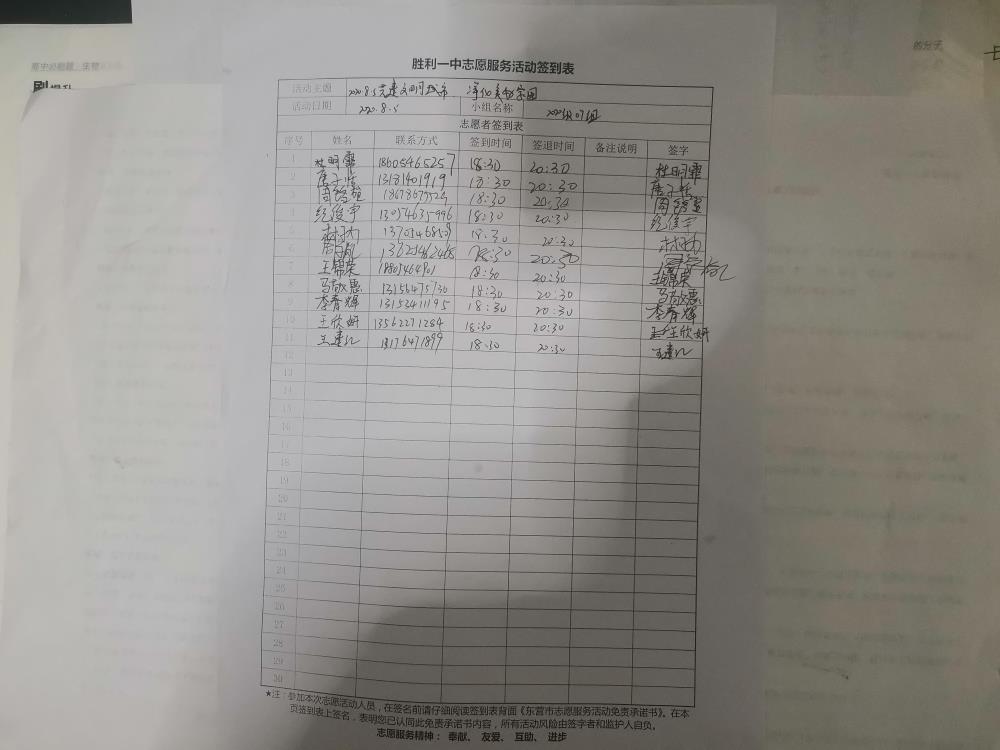 胜利一中志愿服务活动签到表
活动主题 2020.8.5 创建文明城市 净化美化家园
活动日期 2020.8.5 小组名称
志愿者签到表
序号 姓名 联系方式 签到时间 签退时间 备注说明 签字
1 杜明霏 18605465257 18:30 20:30 杜明霏
2 13181401919 18:30 20:30
3 18678675524 18:30 20:30
4 纪俊宇 13054635996 18:30 20:30 纪俊宇
5 18:30 20:30
6 13625462468 18:30 20:30
7 王锦荣 18805464901 18:30 20:30 王锦荣
8 马敬惠 13156475730 18:30 20:30 马敬惠
9 李春辉 13153411195 18:30 20:30 李春辉
10 王欣妍 13562271284 18:30 20:30 王欣妍
11 13176471899 18:30 20:30
12
13
14
15
16
17
18
19
20
21
22
23
24
25
26
27
28
29
30
★注：参加本次志愿活动人员，在签名前请仔细阅读签到表背面《东营市志愿服务活动免责承诺书》。在本
页签到表上签名，表明您已认同此免责承诺书内容，所有活动风险由签字者和监护人自负。
志愿服务精神：奉献、友爱、互助、进步